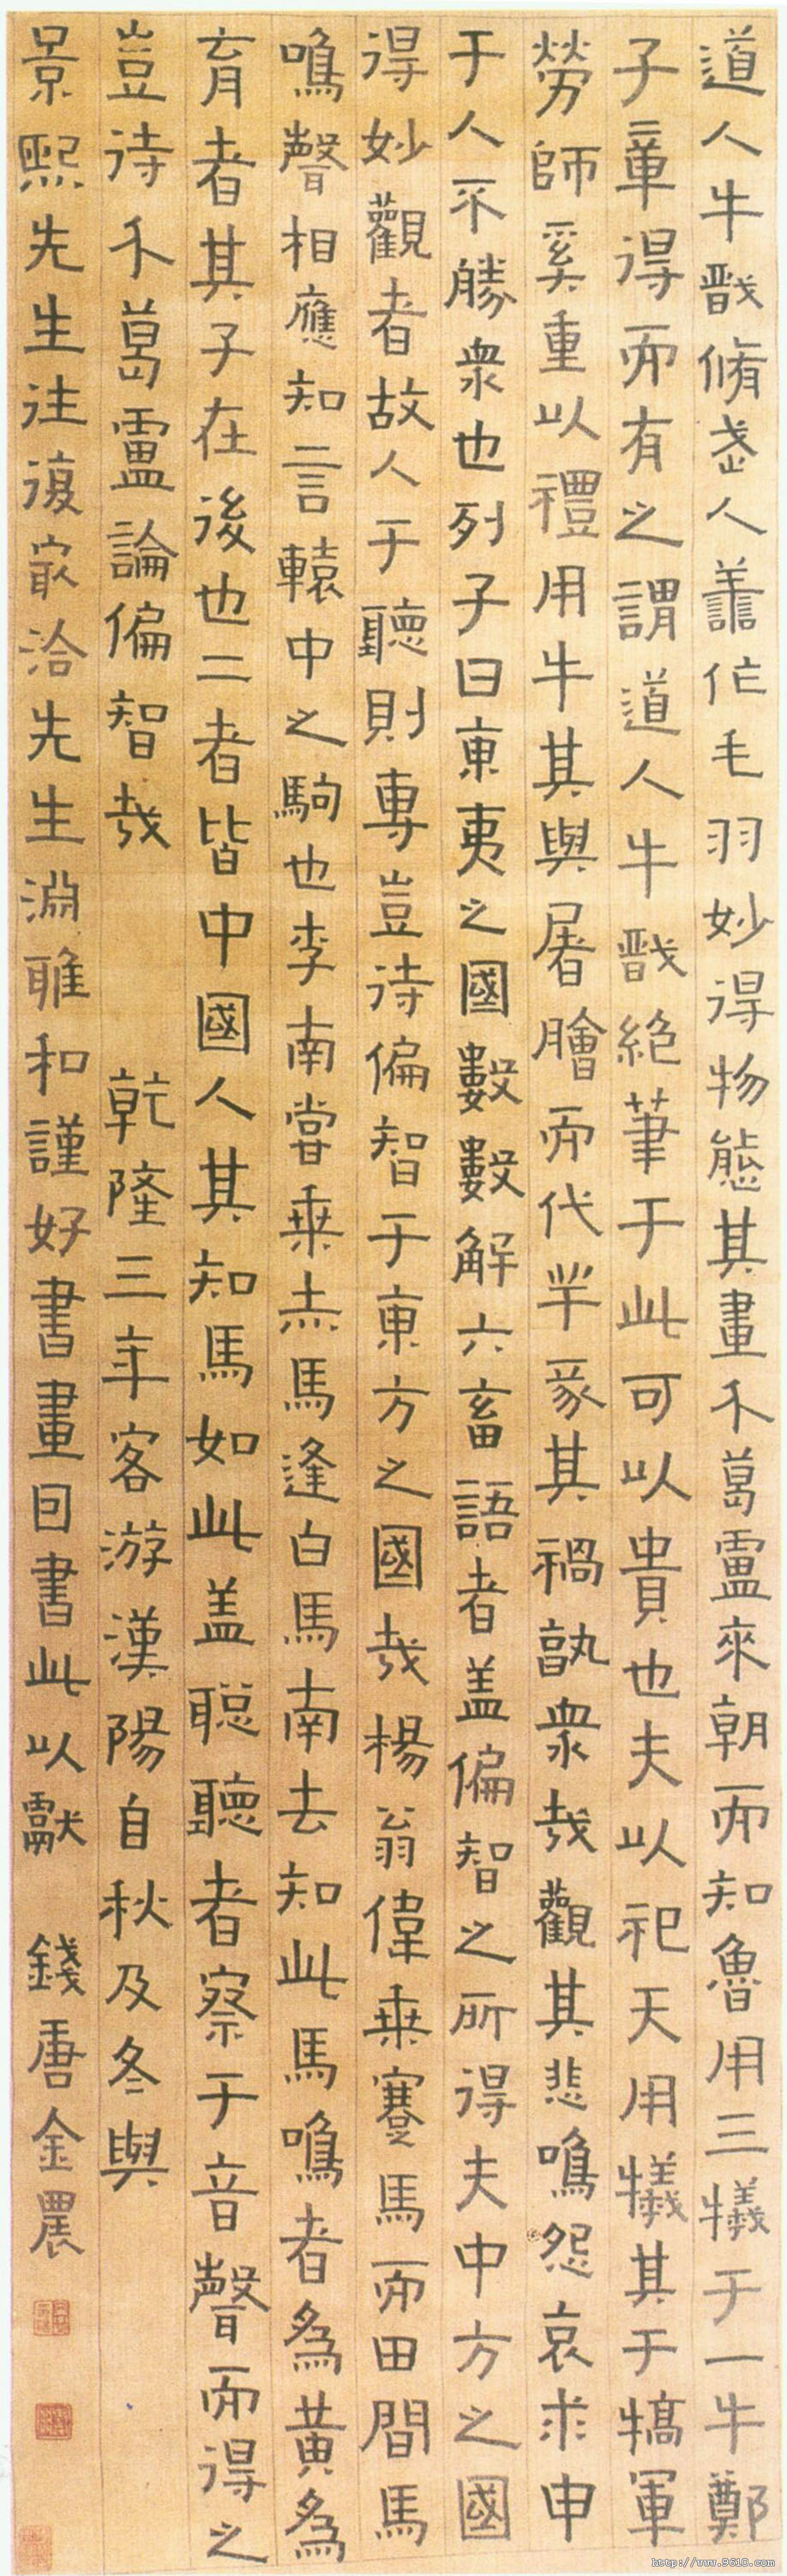 道人牛戩脩武人善作毛羽妙得物態其畫介葛盧來朝而知魯用三犧于一牛鄭
子章得而有之謂道人牛戩絶筆于此可以貴也夫以祀天用犧其于犒軍
勞師奚重以禮用牛其與屠膾而代羊豕其禍孰衆哉觀其悲鳴怨哀求申
于人不勝衆也列子曰東夷之國數數解六畜語者盖偏智之所得夫中方之國
得妙觀者故人于聽則專豈待偏智于東方之國哉楊翁偉乗蹇馬而田間馬
鳴聲相應知言轅中之駒也李南嘗乗赤馬逢白馬南去知此馬鳴者為黄為
育者其子在後也二者皆中國人其知馬如此盖聰聽者察于音聲而得之
豈待介葛盧論偏智哉 乾隆三年客游漢陽自秋及冬與
景熙先生往復最洽先生淵雅和謹好書畫因書此以獻 錢唐金農
http://www.9610.com